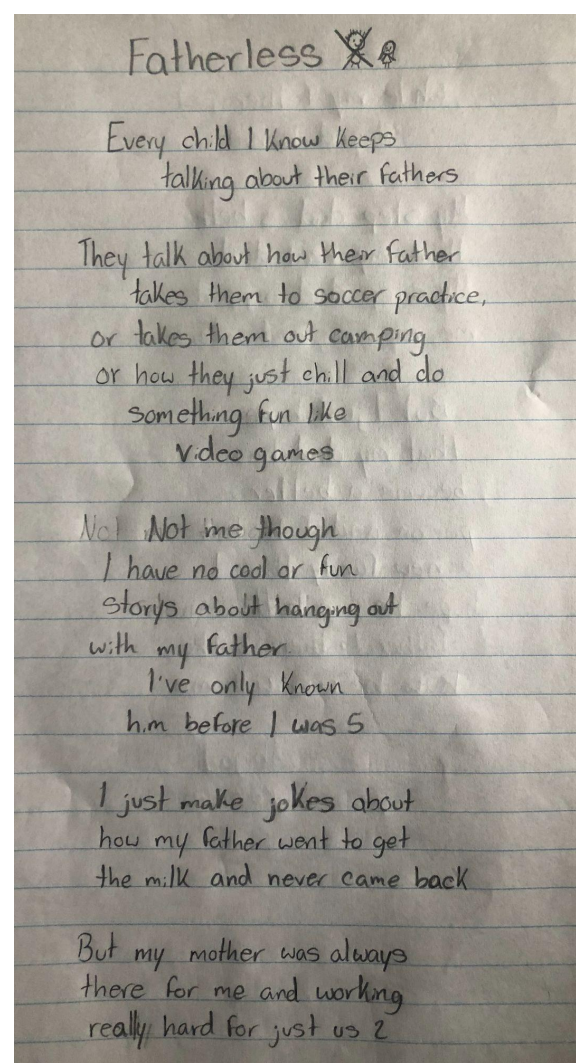 Fatherless
Every child I know keeps
talking about their fathers
They talk about how their father
takes them to soccer practice,
or takes them out camping
or how they just chill and do
something fun like
video games
Not me though
I have no cool or fun
storys about hanging out
with my father.
I've only known
him before I was 5
I just make jokes about
how my father went to get
the milk and never came back
But my mother was always
there for me and working
really hard for just us 2